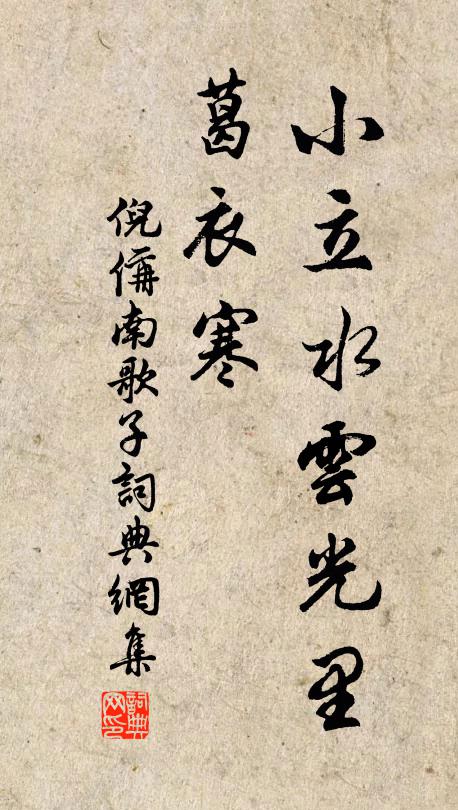 小立水雲光里
葛衣寒
倪偁南歌子詞典網集
詞典网印